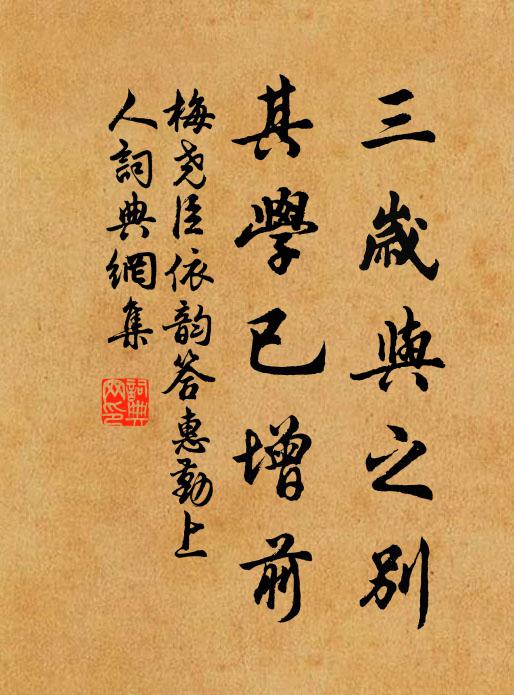 三歲與之別
其學已增前
梅堯臣依韵答惠勤上
人詞典網集
詞典
网印